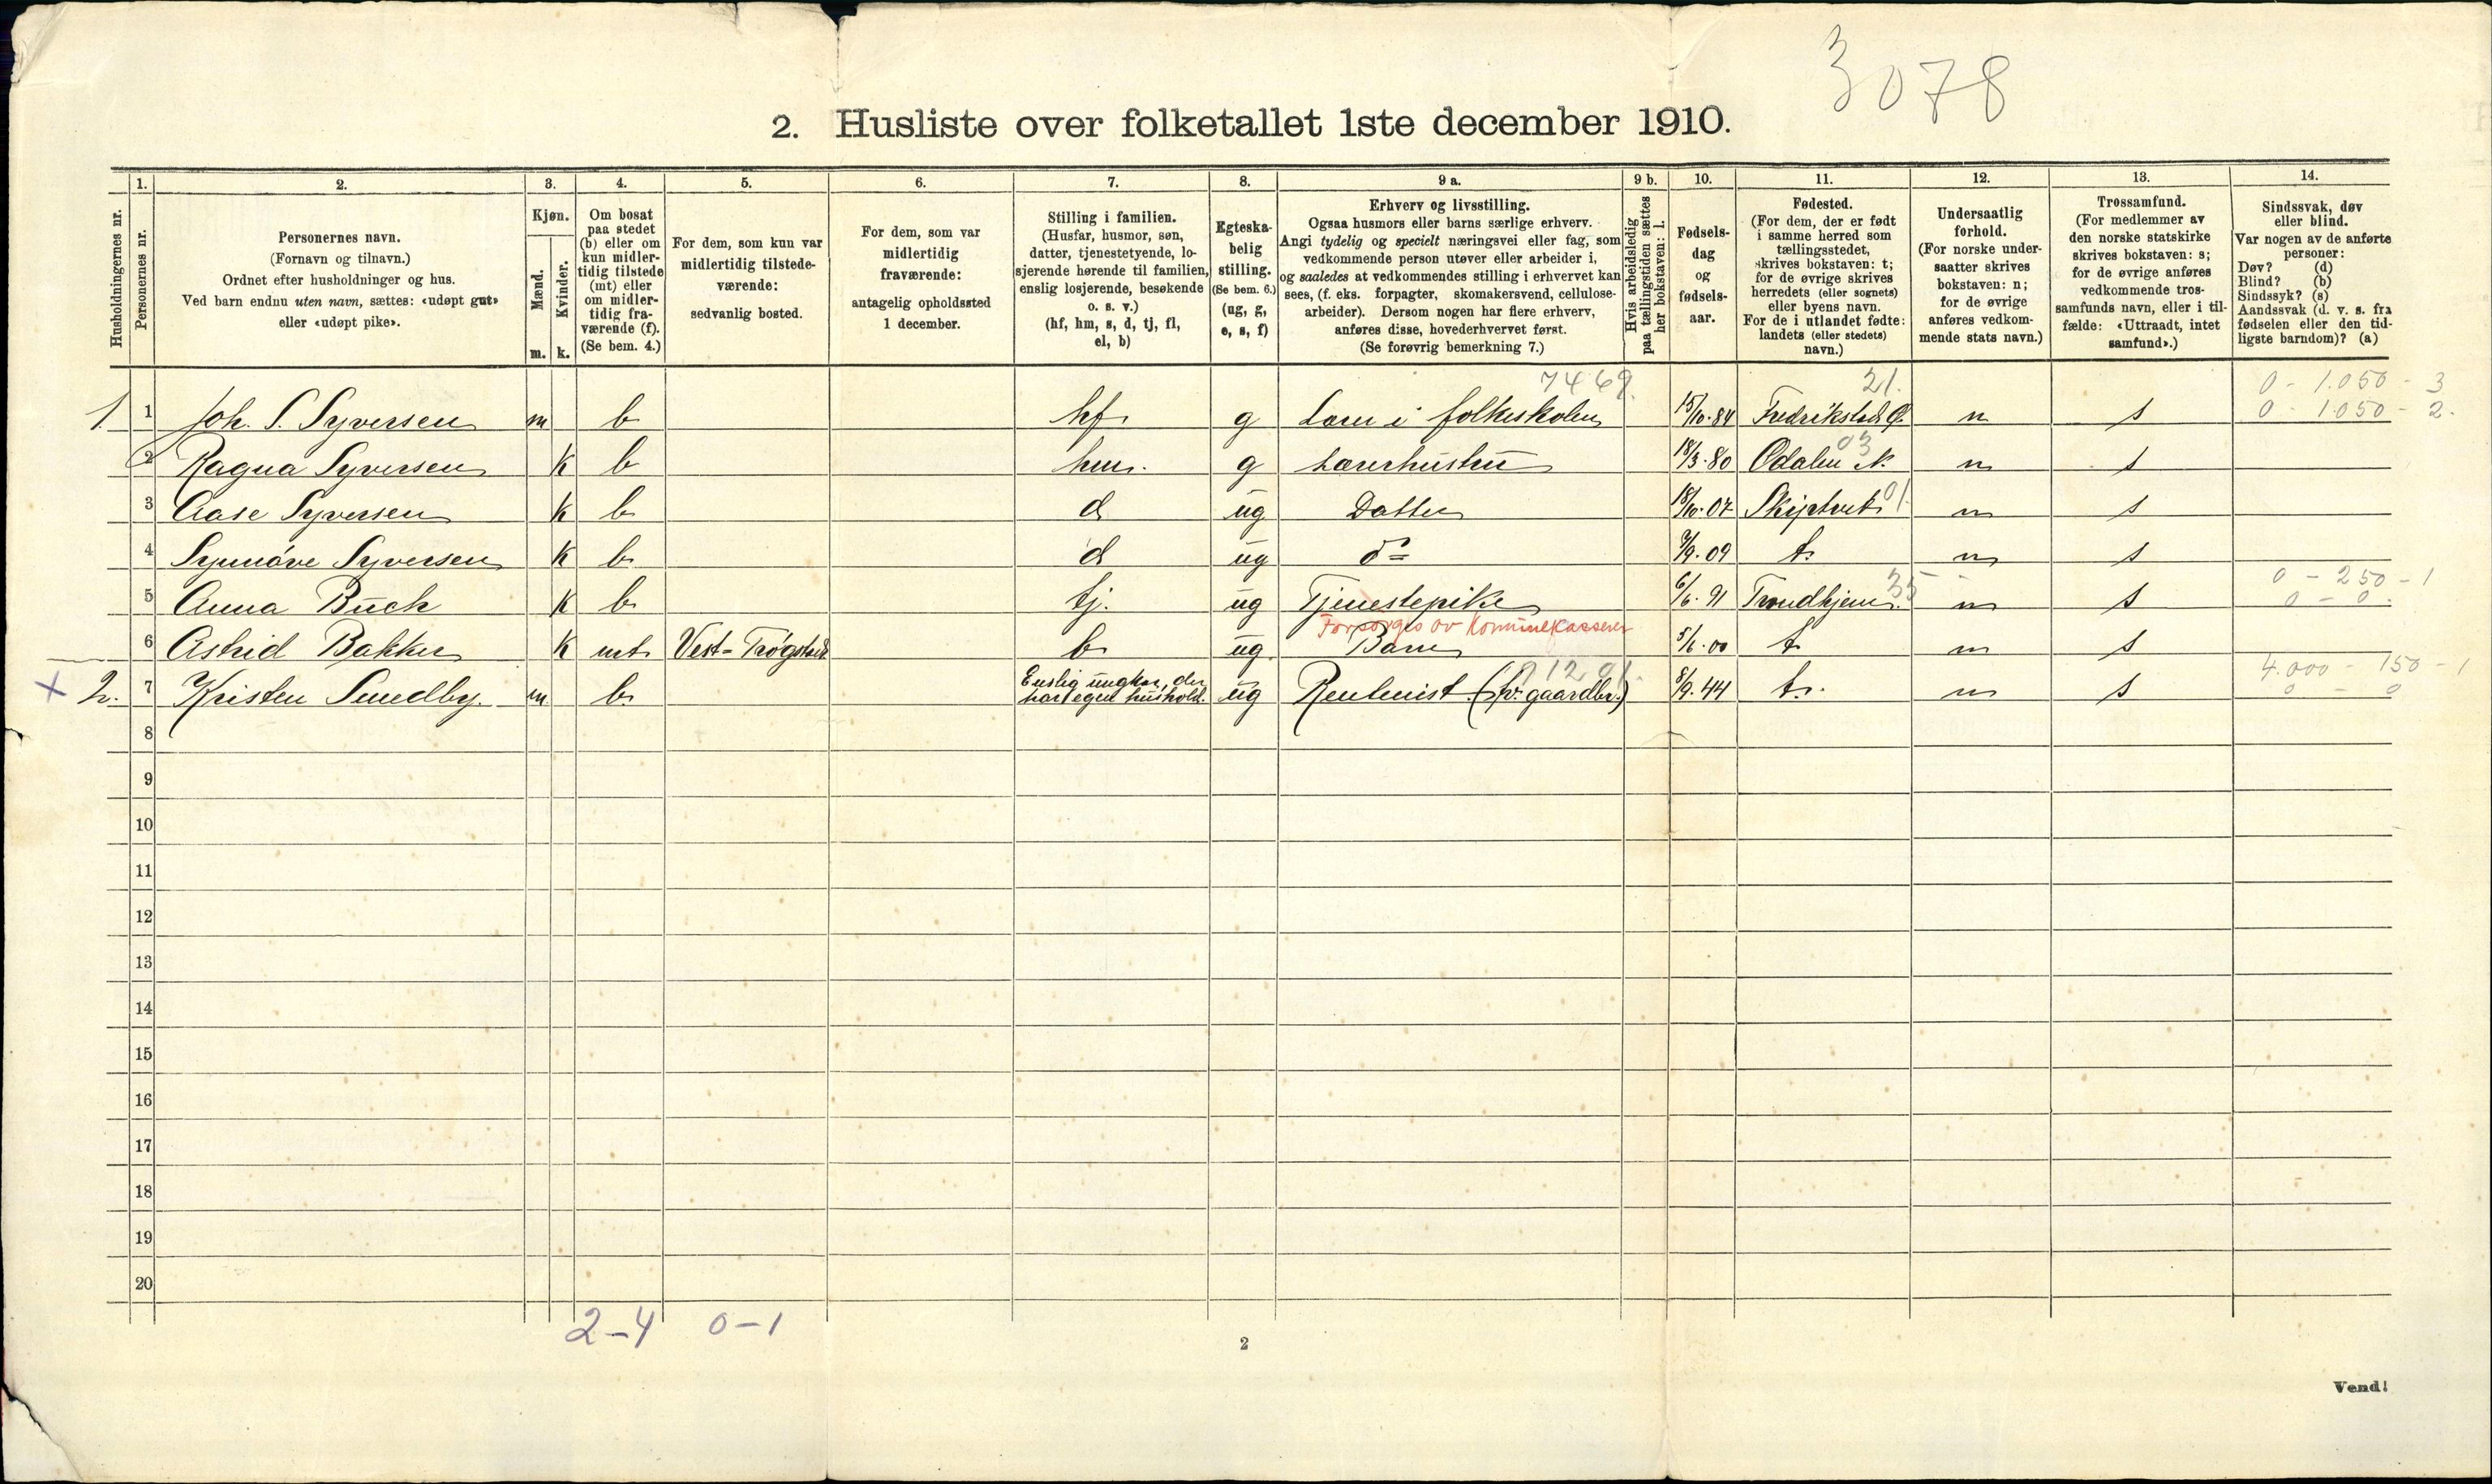 3078
2. Husliste over folketallet 1ste december 1910.
Husholdningernes nr.
1. Personernes nr.
2. Personernes navn. (Fornavn og tilnavn.) Ordnet efter husholdninger og hus. Ved barn endnu uten navn, sættes: «udøpt gut» eller «udøpt pike».
3. Kjøn. Mænd. m. Kvinder. k.
4. Om bosat paa stedet (b) eller om kun midlertidig tilstede (mt) eller om midlertidig fraværende (f). (Se bem. 4.)
5. For dem, som kun var midlertidig tilstedeværende: sedvanlig bosted.
6. For dem, som var midlertidig fraværende: antagelig opholdssted 1 december.
7. Stilling i familien. (Husfar, husmor, søn, datter, tjenestetyende, losjerende hørende til familien, enslig losjerende, besøkende o. s. v.) (hf, hm, s, d, tj, fl, el, b)
8. Egteskabelig stilling. (Se bem. 6.) (ug, g, e, s, f)
9 a. Erhverv og livsstilling. Ogsaa husmors eller barns særlige erhverv. Angi tydelig og specielt næringsvei eller fag, som vedkommende person utøver eller arbeider i, og saaledes at vedkommendes stilling i erhvervet kan sees, (f. eks. forpagter, skomakersvend, cellulosearbeider). Dersom nogen har flere erhverv, anføres disse, hovederhvervet først. (Se forøvrig bemerkning 7.)
9 b. Hvis arbeidsledig paa tællingstiden sættes her bokstaven: l.
10. Fødselsdag og fødselsaar.
11. Fødested. (For dem, der er født i samme herred som tællingsstedet, skrives bokstaven: t; for de øvrige skrives herredets (eller sognets) eller byens navn. For de i utlandet fødte: landets (eller stedets) navn.)
12. Undersaatlig forhold. (For norske undersaatter skrives bokstaven: n; for de øvrige anføres vedkommende stats navn.)
13. Trossamfund. (For medlemmer av den norske statskirke skrives bokstaven: s; for de øvrige anføres vedkommende trossamfunds navn, eller i tilfælde: «Uttraadt, intet samfund».)
14. Sindssvak, døv eller blind. Var nogen av de anførte personer: Døv? (d) Blind? (b) Sindssyk? (s) Aandssvak (d. v. s. fra fødselen eller den tidligste barndom)? (a)
7469. 21. 0 - 1.050 - 3
1 1 Joh. S. Syversen m b hf g Lærer i folkeskolen 15/10.84 Fredrikstad n s 0 - 1050 - 2.
03
2 Ragna Syversen k b hm. g Lærerhustru 18/3.80 Odalen N. n s
3 Aase Syversen k b d ug Datter 18/10.07 Skiptvet 01 n s
4 Synnöve Syversen k b d ug do 9/9.09 t. n s
35 0 - 250 - 1
5 Anna Buch k b tj. ug Tjenestepike 6/6.91 Trondhjem. n s 0 - 0.
Forsørges av Kommunekassen
6 Astrid Bakken k mt Vest-Trøgstad b ug Barn 5/6.00 t. n s
91201. 4.000 - 150 - 1
x 2. 7 Kristen Smedby. m b. Enslig ungkar, der har egen hushold. ug Rentenist. (fv. gaardbr.) 8/9.44 t. n s 0 - 0
8
9
10
11
12
13
14
15
16
17
18
19
20
2-4 0-1
2
Vend!